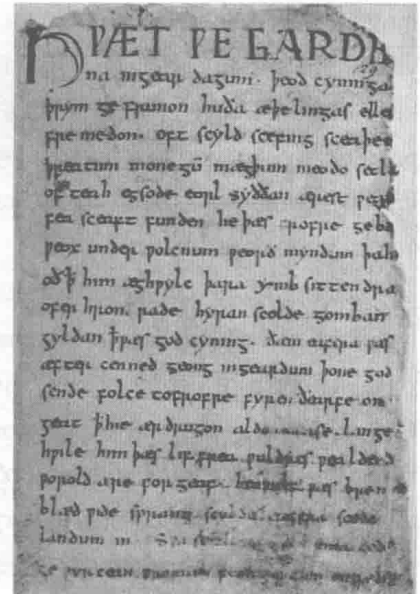 HǷÆT ǷE GARDE
na ingear dagum. þeod cyninga
þrym ge frunon huða æþelingas elle
fre medon. oft scyld scefing sceaþe
þreatum monegū mægþum meodo setla
of teah egsode eorl syððan ærest ƿear
fea sceaft funden he þæs frofre geba
ƿeox under ƿolcnum ƿeorð myndum þah
oð ꝥ him æghƿylc þara ymb sittendra
ofer hron rade hyran scolde gomban
gyldan ꝥ ƿæs god cyning. ðæm eafera ƿæs
æfter cenned geong ingeardum þone god
sende folce tofrofre fyren ðearfe on
geat ꝥ hie ær drugon aldor ase. lange
hƿile him þæs liffrea ƿuldres ƿealdend
ƿorold are for geaf. beoƿulf ƿæs breme
blæd ƿide sprang scyldes eafera scede
landum in Sƿa guma gode
ge ƿyrcean fromum